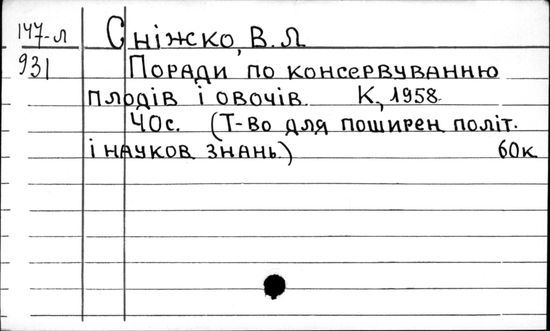 147-л Сніжко, В.Л
931 Поради по консервуванню
плодів і овочів. К, 1958
40с. (Т-во для поширен, політ.
і науков знань.) 60к